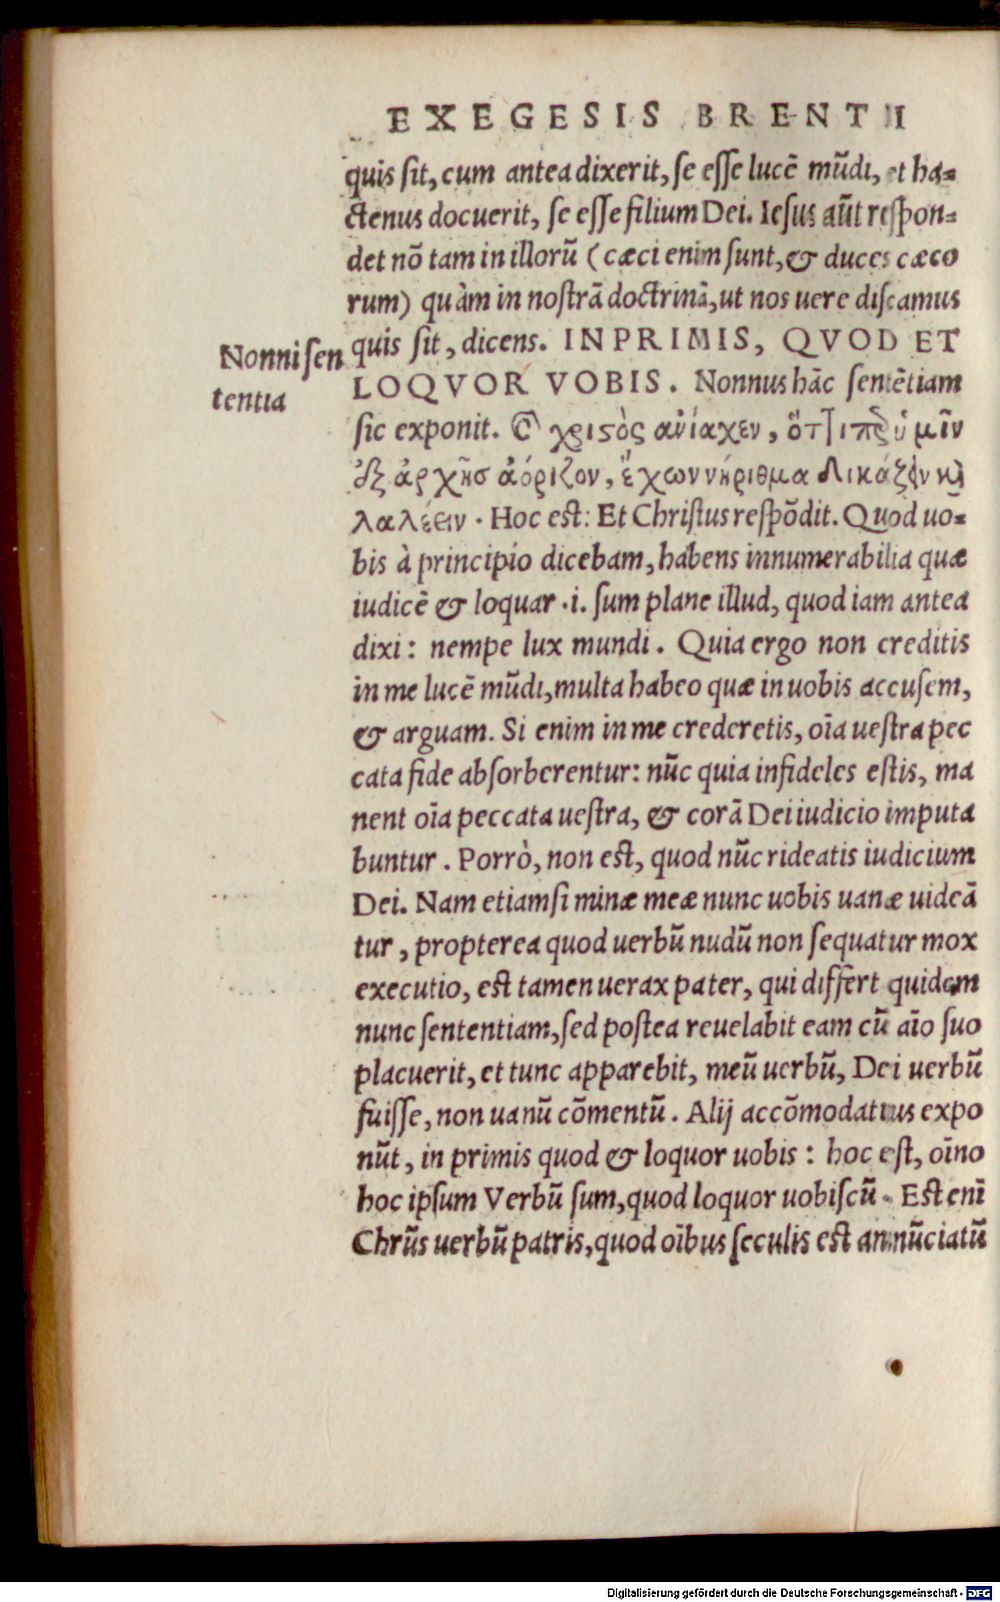 EXEGESIS BRENTII
quis sit, cum antea dixerit, se esse lucē mūdi, et ha⸗
ctenus docuerit, se esse filium Dei. Iesus aūt respon⸗
det nō tam in illorū (cæci enim sunt, & duces cæco
rum) quàm in nostrā doctrinā, ut nos uere discamus
Nonni sen
tentia
quis sit, dicens. INPRIMIS, QVOD ET
LOQVOR VOBIS. Nonnus hāc sentētiam
sic exponit. χριστὸς ἀνίαχεν, ὅττι περ ὑμῖν
ἐξ ἀρχῆσ ἀόριζον, ἔχων νήριθμα δικάζειν καὶ
λαλέειν. Hoc est: Et Christus respōdit. Quod uo⸗
bis à principio dicebam, habens innumerabilia quæ
iudicē & loquar .i. sum plane illud, quod iam antea
dixi: nempe lux mundi. Quia ergo non creditis
in me lucē mūdi, multa habeo quæ in uobis accusem,
& arguam. Si enim in me crederetis, oīa uestra pec
cata fide absorberentur: nūc quia infideles estis, ma
nent oīa peccata uestra, & corā Dei iudicio imputa
buntur. Porrò, non est, quod nūc rideatis iudicium
Dei. Nam etiamsi minæ meæ nunc uobis uanæ uideā
tur, propterea quod uerbū nudū non sequatur mox
executio, est tamen uerax pater, qui differt quidem
nunc sententiam, sed postea reuelabit eam cū aīo suo
placuerit, et tunc apparebit, meū uerbū, Dei uerbū
fuisse, non uanū cōmentū. Alij accōmodatius expo
nūt, in primis quod & loquor uobis: hoc est, oīno
hoc ipsum Verbū sum, quod loquor uobiscū. Est enī
Chrūs uerbū patris, quod oībus seculis est annūciatū
Digitalisierung gefördert durch die Deutsche Forschungsgemeinschaft - DFG